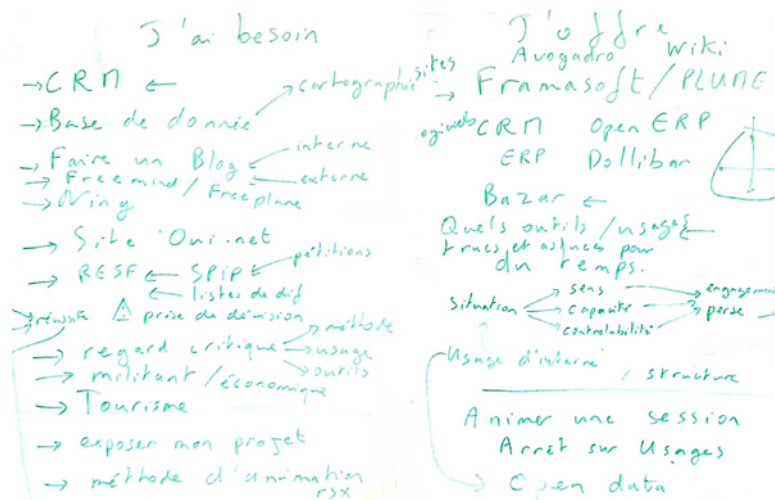 J'ai besoin
→ CRM ←
→ Base de donnée → cartographie
→ Faire un Blog ← interne
→ Freemind / Freeplane ← externe
→ Ning
→ Site Oui.net
→ RESF ← SPIP ← pétitions
← listes de dif
→ réussite ⚠ prise de décision
→ regard critique → méthode
→ usage
→ outils
→ militant / économique
→ Tourisme
→ exposer mon projet
→ méthode d'animation
rsx
J'offre
Avogadro Wiki
sites → Framasoft / PLUME
ogiciels CRM Open ERP
ERP Dollibar
Bazar ←
Quels outils / usages ←
trucs et astuces pour
du temps.
Situation → sens → engagement
→ capacité → perse
→ controlabilité
Usage d'interne
/ structure
Animer une session
Arrêt sur Usages
→ Open data